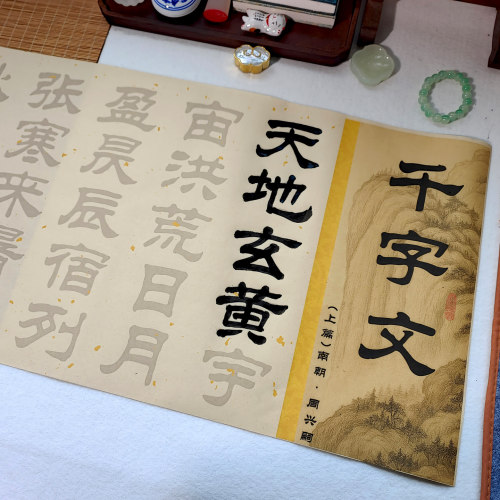 千字文
（上篇）南朝·周兴嗣
天地玄黄宇
宙洪荒日月
盈昃辰宿列
张寒来暑